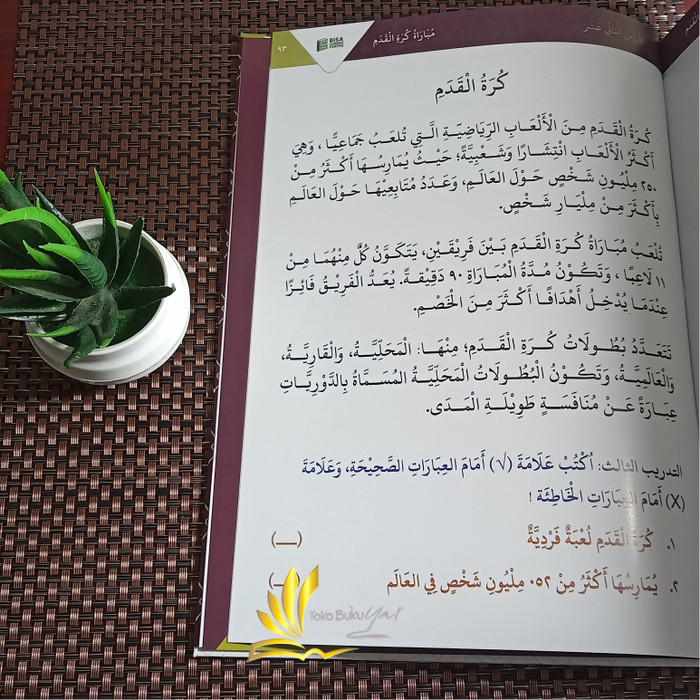 ٩٣
BISA
مُبَارَاةُ كُرَةِ الْقَدَمِ
الثَّانِي عَشَر
كُرَةُ الْقَدَمِ
كُرَةُ الْقَدَمِ مِنَ الْأَلْعَابِ الرِّيَاضِيَّةِ الَّتِي تُلْعَبُ جَمَاعِيًّا ، وَهِيَ
أَكْثَرُ الْأَلْعَابِ انْتِشَارًا وَشَعْبِيَّةً؛ حَيْثُ يُمَارِسُهَا أَكْثَرُ مِنْ
٢٥٠ مِلْيُونِ شَخْصٍ حَوْلَ الْعَالَمِ، وَعَدَدُ مُتَابِعِيْهَا حَوْلَ الْعَالَمِ
بِأَكْثَرَ مِنْ مِلْيَارِ شَخْصٍ.
تُلْعَبُ مُبَارَاةُ كُرَةِ الْقَدَمِ بَيْنَ فَرِيْقَيْنِ، يَتَكَوَّنُ كُلٌّ مِنْهُمَا مِنْ
١١ لَاعِبًا ، وَتَكُوْنُ مُدَّةُ الْمُبَارَاةِ ٩٠ دَقِيْقَةً. يُعَدُّ الْفَرِيْقُ فَائِزًا
عِنْدَمَا يُدْخِلُ أَهْدَافًا أَكْثَرَ مِنَ الْخَصْمِ.
تَتَعَدَّدُ بُطُولَاتُ كُرَةِ الْقَدَمِ؛ مِنْهَا: الْمَحَلِّيَّةُ، وَالْقَارِيَّةُ،
وَالْعَالَمِيَّةُ، وَتَكُوْنُ الْبُطُولَاتُ الْمَحَلِّيَّةُ الْمُسَمَّاةُ بِالدَّوْرِيَّاتِ
عِبَارَةً عَنْ مُنَافَسَةٍ طَوِيْلَةِ الْمَدَى.
التدريب الثالث: اُكْتُبْ عَلَامَةَ (√) أَمَامَ العِبَارَاتِ الصَّحِيْحَةِ، وَعَلَامَةَ
(X) أَمَامَ العِبَارَاتِ الْخَاطِئَة !
١. كُرَةُ الْقَدَمِ لُعْبَةٌ فَرْدِيَّةٌ (__)
٢. يُمَارِسُهَا أَكْثَرُ مِنْ ٠٥٢ مِلْيُونِ شَخْصٍ فِي العَالَم (__)
Toko Buku Yai